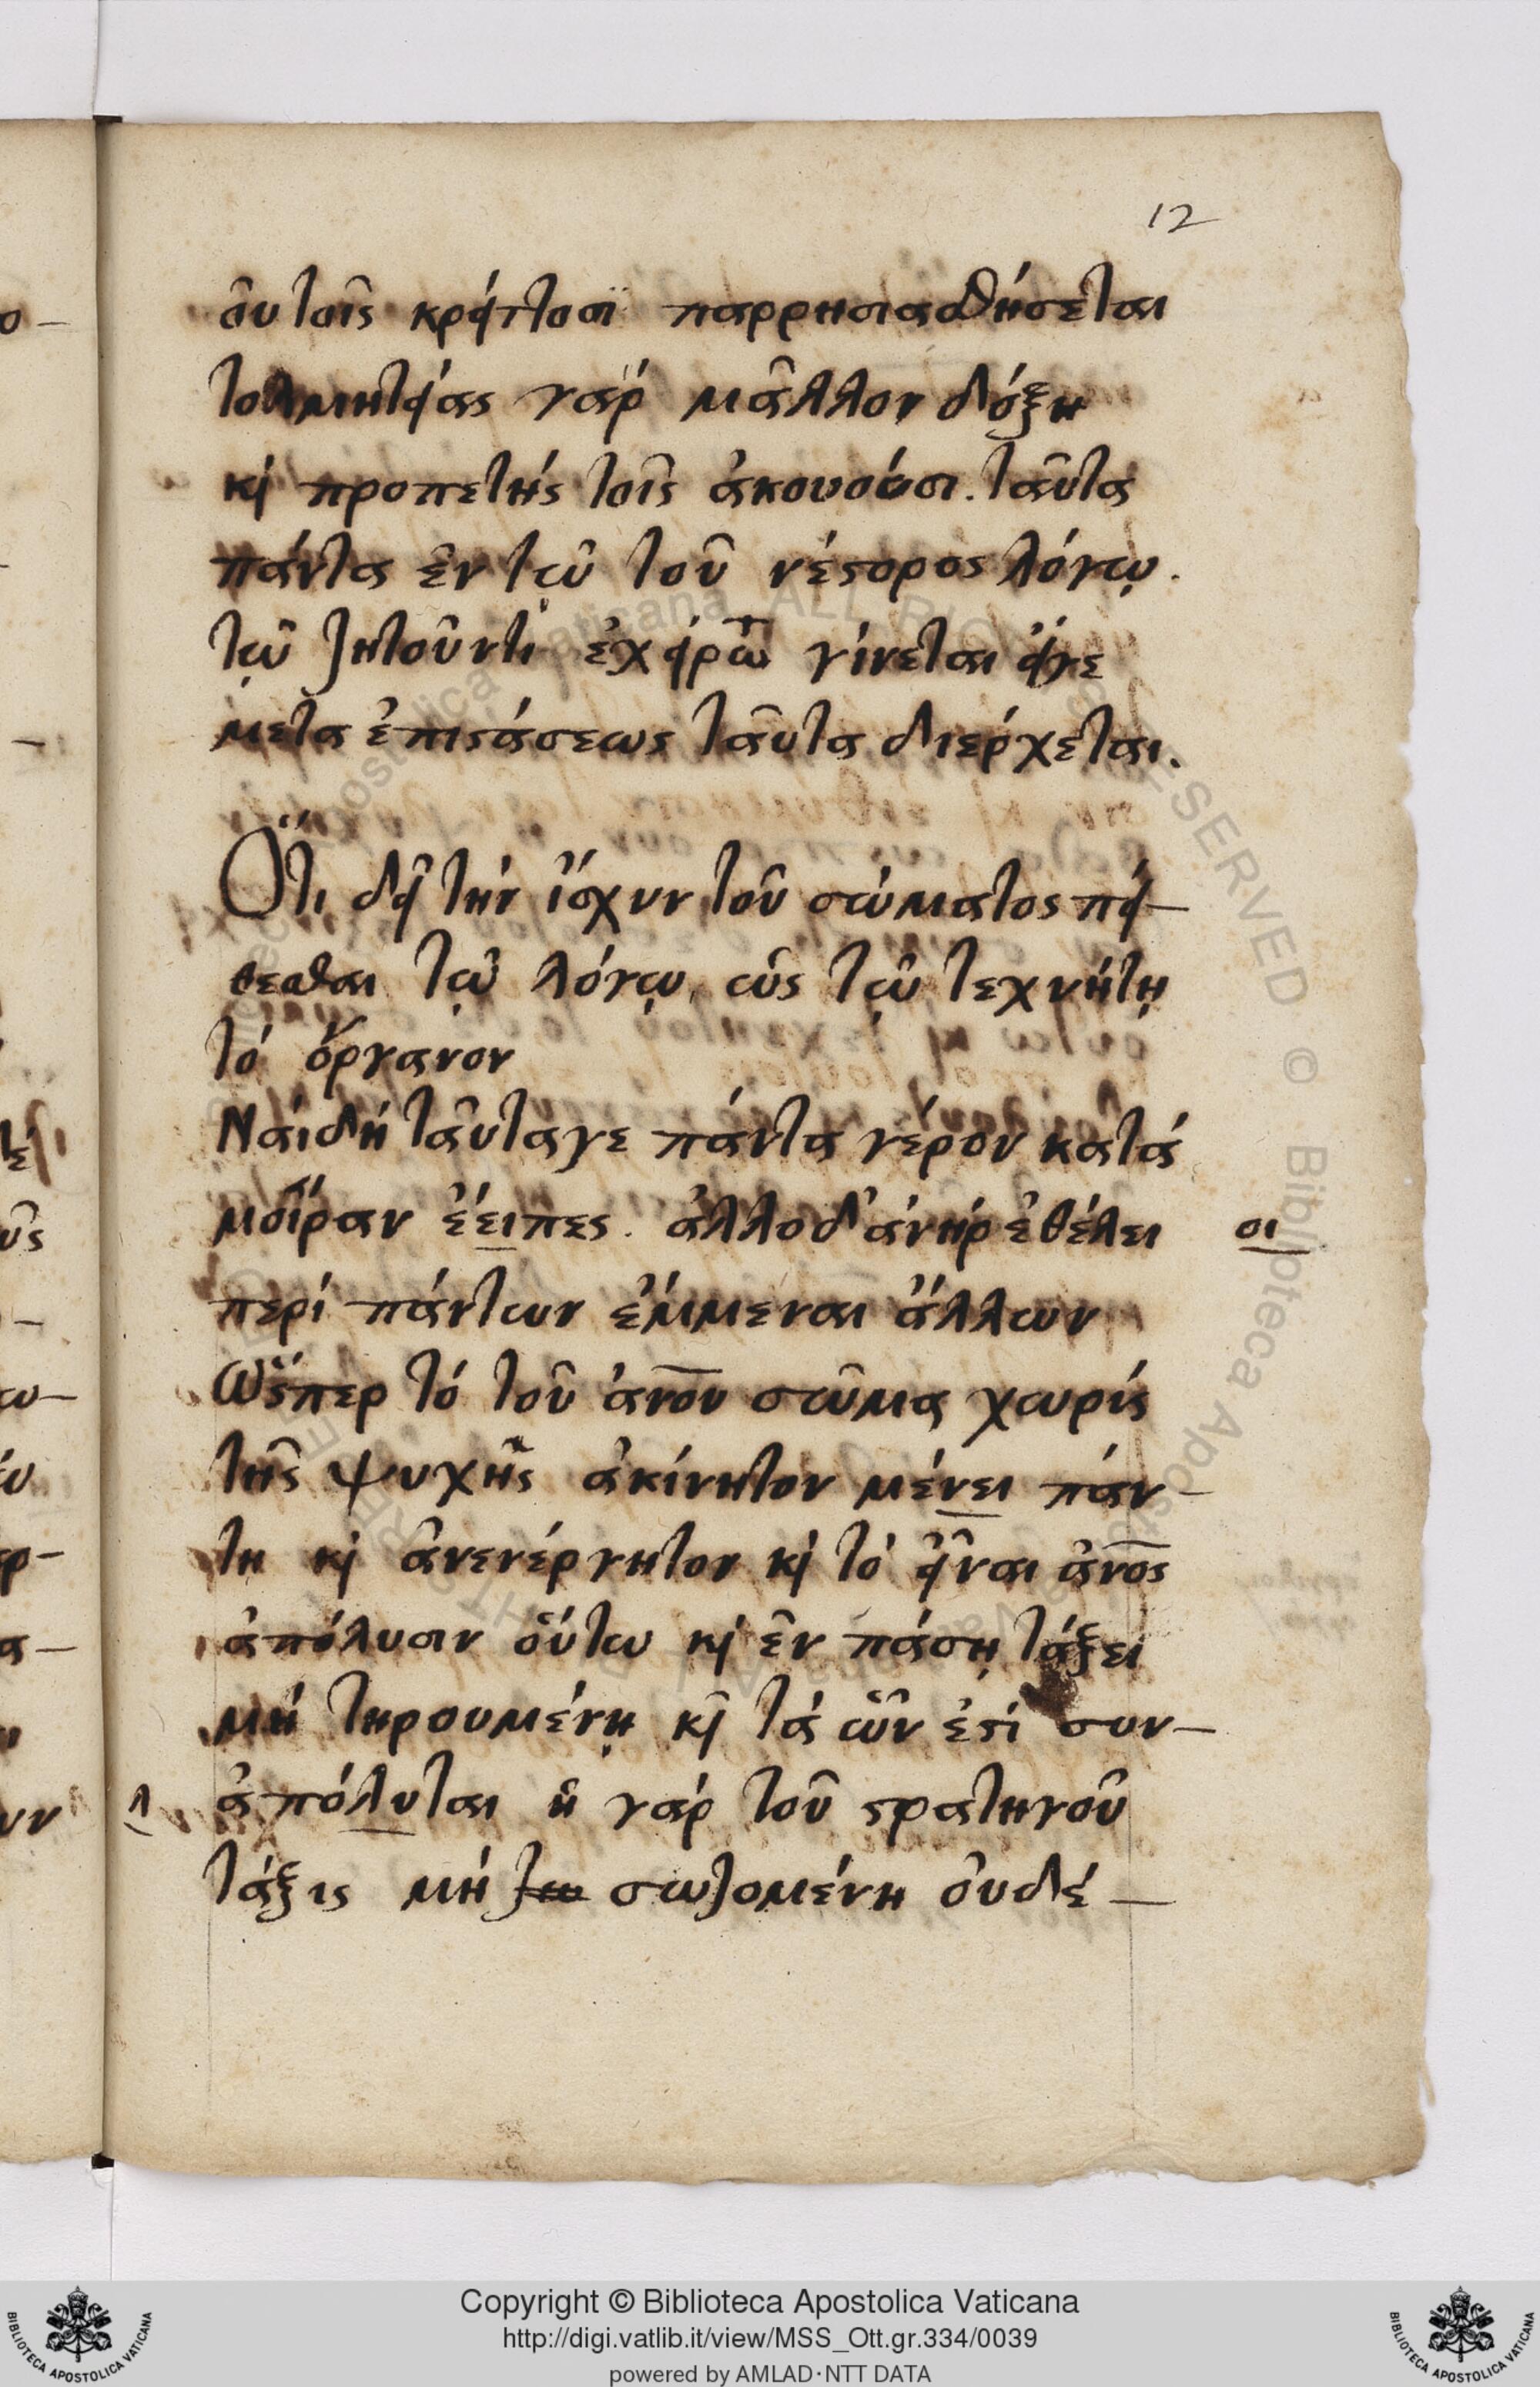 12
ὀυτοῖς κρείττοσι παρρησιασθήσεται
τολμητείας γὰρ μᾶλλον δόξη
κὶ προπετὴς τοῖς ἀκουούσι. ταῦτα
πάντα ἐν τῷ τοῦ νέϛορος λόγῳ.
τῷ ζητοῦντι γίνεται εἴγε
μετα ἐπιϛάσεως ταῦτα διέρχεται.
Ὅτι δεῖ τὴν ἴσχυν τοῦ σώματος πεί-
θεσθαι τῷ λόγῳ, ὡς τῷ τεχνήτῃ
τὸ ὄργανον
Ναίδὴ ταῦταγε πάντα γέρον κατά
μοῖραν ἔειπες. ἀλλοδ'ἀνὴρ ἐθέλει
οι
περὶ πάντων ἔμμεναι ἄλλων
Ὥσπερ τὸ τοῦ ἀνου σῶμα χωρὶς
τῆς ψυχῆς ἀκίνητον μένει πάν-
τη κὶ ἀνενέργητον κὶ τὸ εἶναι ἀνος
ἀπόλυσιν οὕτω κὶ ἐν πάσῃ τάξει
μὴ τηρουμένῃ κὶ τὰ ὧν ἐϛὶ συν-
λ
ἀπόλυται ἡ γὰρ τοῦ ϛρατηγοῦ
τάξις μὴ ζω σωζομένη ὀυδέ-
Copyright © Biblioteca Apostolica Vaticana
http://digi.vatlib.it/view/MSS_Ott.gr.334/0039
powered by AMLAD·NTT DATA
BIBLIOTECA APOSTOLICA VATICANA
BIBLIOTECA APOSTOLICA VATICANA